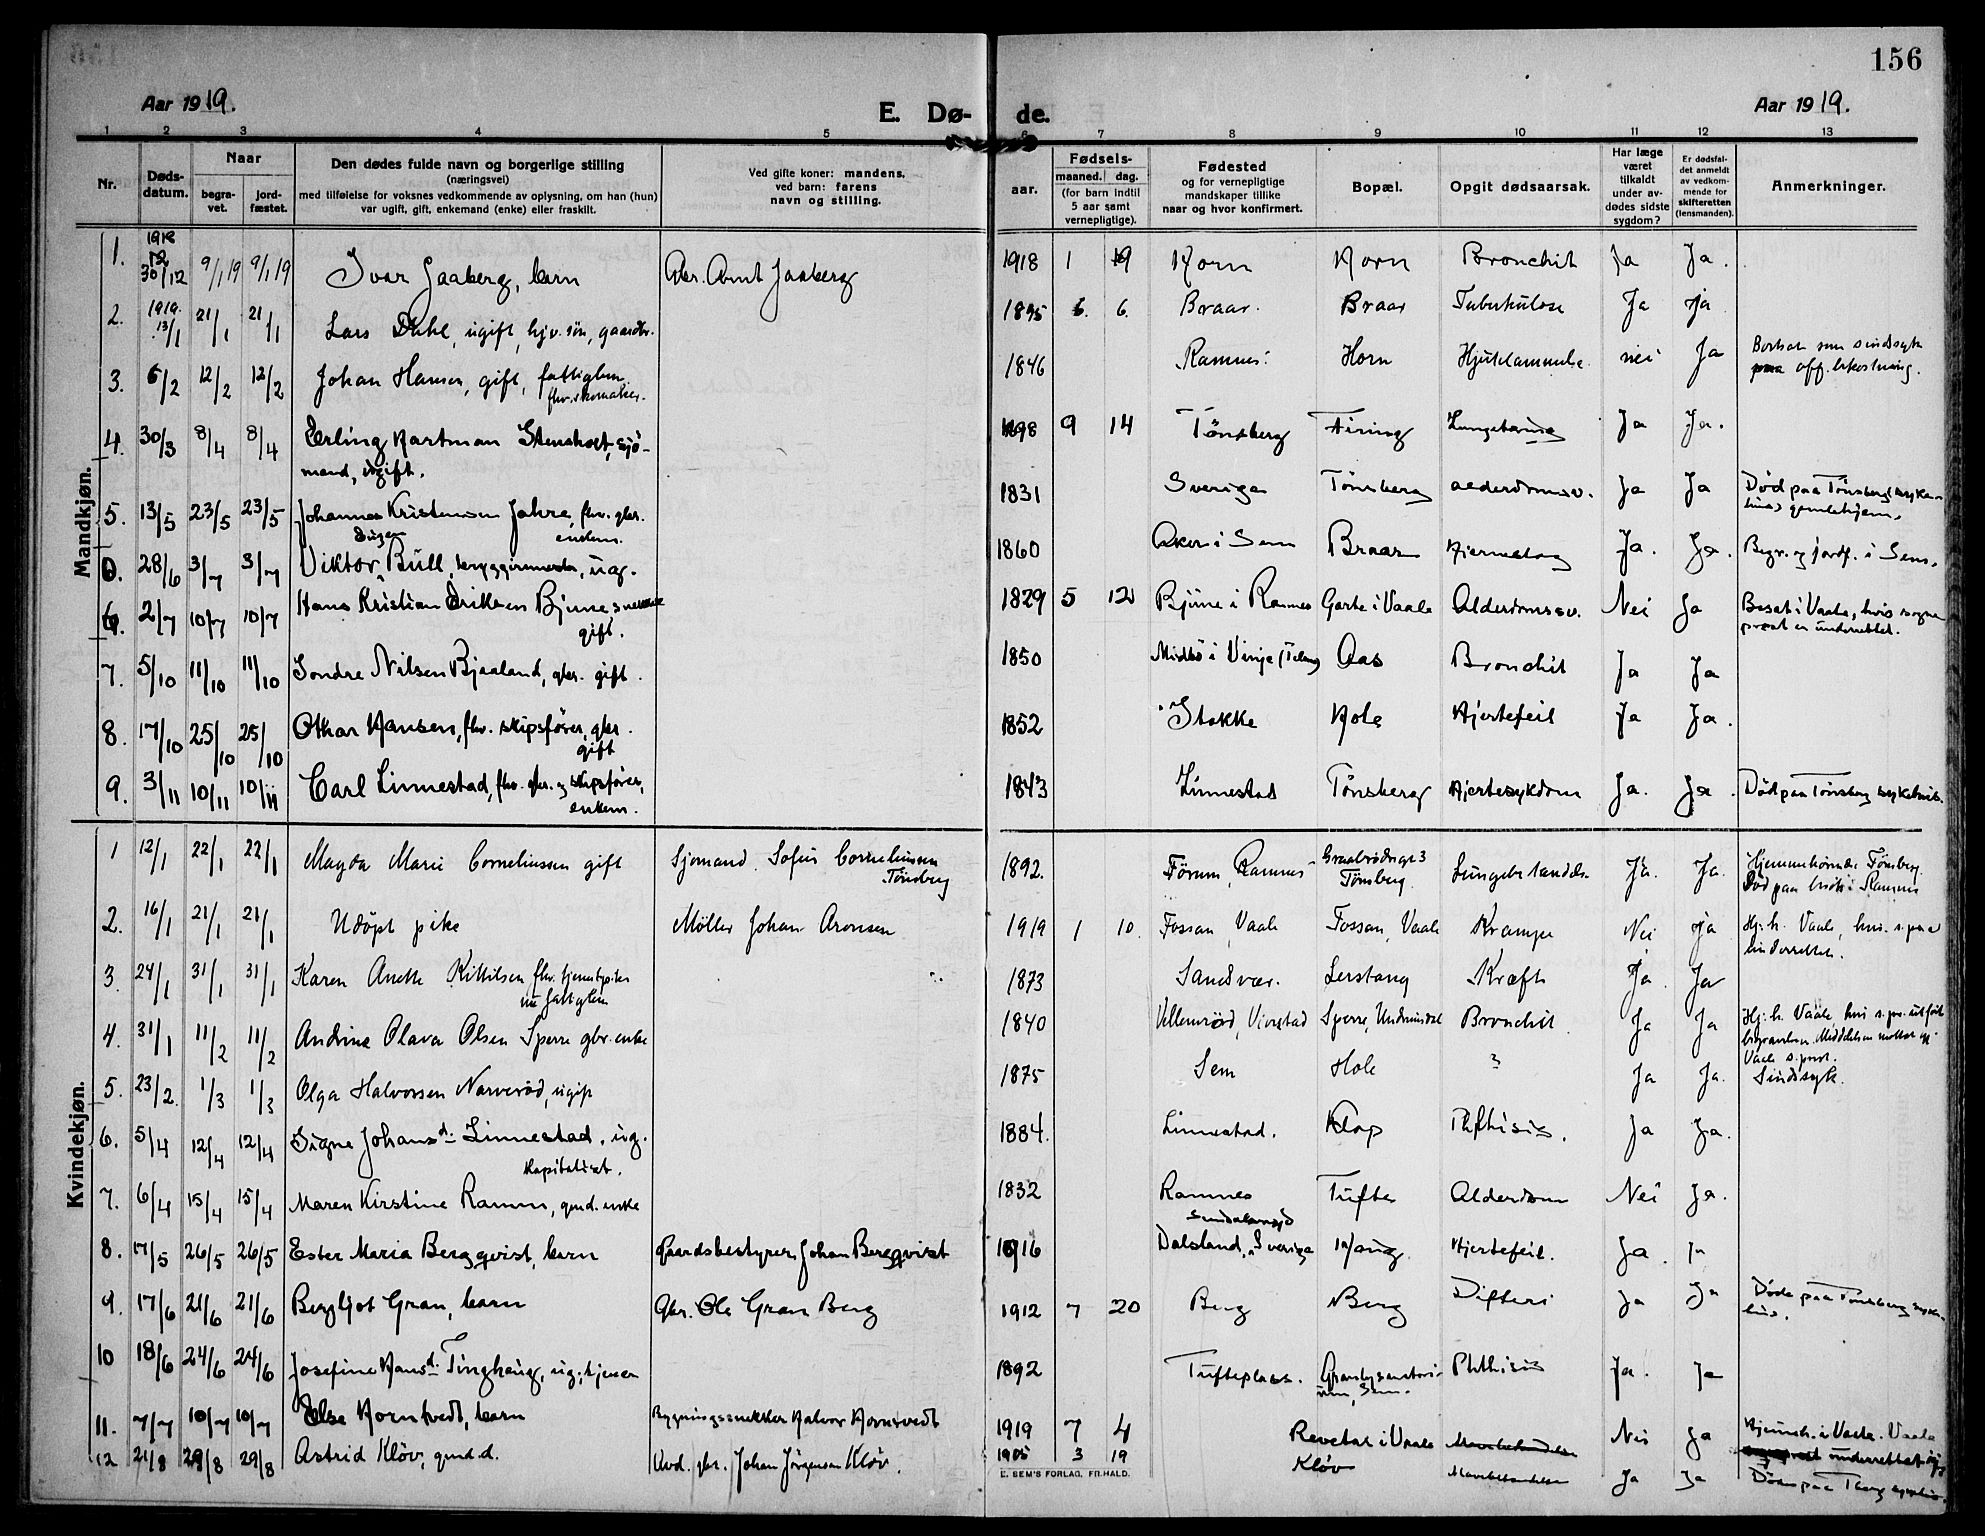 156
Aar 1919.
E. Dø- de.
Aar 1919.
1 2 3 4 5 6 7 8 9 10 11 12 13
Nr. Døds-datum. Naar begra-vet. jord-fæstet. Den dødes fulde navn og borgerlige stilling (næringsvei) med tilføielse for voksnes vedkommende av oplysning, om han (hun) var ugift, gift, enkemand (enke) eller fraskilt. Ved gifte koner: mandens, ved barn: farens navn og stilling. aar. Fødsels- maaned. dag. (for barn indtil 5 aar samt vernepligtige). Fødested og for vernepligtige mandskaper tillike naar og hvor konfirmert. Bopæl. Opgit dødsaarsak. Har læge været tilkaldt under av-dødes sidste sygdom? Er dødsfal-det anmeldt av vedkom-mende for skifteretten (lensmanden). Anmerkninger.
Mandkjøn.
1. 1918 30/12 9/1 19 9/1 19 Ivar Jaaberg, barn Gbr. Arnt Jaaberg 1918 1 19 Horn Horn Bronchit Ja Ja.
2. 1919. 13/1 21/1 21/1 Lars Dahl, ugift, hjv. søn, gaardbr. 1895 6. 6. Braar. Braar Tuberkulose Ja Ja
3. 6/2 12/2 12/2 Johan Hansen, gift, fattiglem, fhv. skomaker. 1846 Ramnes. Horn nei Ja Bortsat som sindssyk paa off. bekostning.
4. 30/3 8/4 8/4 Erling Hartman Stensholt, sjö-mand, ugift. 1898 9 14 Tönsberg Ja Ja.
5. 13/5 23/5 23/5 Johannes Kristensen Jahre, fhv. gbr. enkem. 1831 Sverige Tönsberg alderdomssv. Ja Ja Död paa Tönsberg syke-hus gamlehjem.
0. 28/6 3/7 3/7 Viktor Bull, bryggerimester, ug. 1860 Aker i Sem Braar Hjerneslag Ja. Ja. Begr. og jordf. i Sem.
6. 2/7 10/7 10/7 Hans Kristian Eriksen Bjune snekker gift. 1829 5 12 Bjune i Ramnes Garte i Vaale Alderdomssv. Nei Ja Bosat i Vaale, hvis sogne prest er underrettet.
7. 5/10 11/10 11/10 Sondre Nilsen Bjaaland, gbr. gift. 1850 Midbö i Vinje (Telem) Aas Bronchit Ja Ja
8. 17/10 25/10 25/10 Othar Hansen, fhv. skipsfører, gbr. gift 1852 Stokke Hole Hjertefeil Ja Ja.
9. 3/11 10/11 10/11 Carl Linnestad, fhv. gbr. og skipsfører, enkem. 1843 Linnestad Tönsberg Hjertesykdom Ja. Ja. Död paa Tönsberg sykehus.
Kvindekjøn.
1 12/1 22/1 22/1 Magda Marie Corneliussen gift Sjømand Sofus Corneliussen Tönsberg 1892. Förum, Ramnes Graabrødregt 3 Tønsberg Lungebetændels. Ja. Ja. Hjemmehörende Tønsberg. Død paa besök i Ramnes
2. 16/1 21/1 21/1 Udöpt pike Møller Johan Aronsen 1919 1 10. Fossan, Vaale Fossan, Vaale Krampe Nei Ja Hj. h. Vaale, hvis s.pr. er underrettet.
3. 24/1 31/1 31/1 Karen Anette Kittilsen fhv. tjenestepike nu fattiglem 1873 Sandsvær. Lerstang Kræft Ja Ja
4. 31/1 11/2 11/2 Andrine Olava Olsen Sperre gbr. enke 1840 Vellemröd, Vivestad Sperre, Undrumsdal Bronchit. Ja Ja Hj. h. Vaale hvis s. pr. utförte begravelsen. Meddelelsen mottat af Vaale s. prest.
5. 23/2. 1/3 1/3 Olga Halvorsen Narverød, ugift 1875 Sem Hole ? Ja Ja. Sindssyk.
6. 5/4 12/4 12/4 Signe Johansd. Linnestad, ug. kapitalist. 1884. Linnestad. Klop Phthisis. Ja Ja.
7. 6/4 15/4 15/4 Maren Kirstine Ramm, gmd. enke 1832 Ramnes Tufte Alderdom Nei Ja.
8. 17/5 26/5 26/5 Ester Maria Bergqvist, barn Gaardsbestyrer Johan Bergqvist 1916 Dalsland, Sverige Haug. Hjertefeil. Ja. Ja
9. 17/6 21/6 21/6 Bergljot Gran, barn Gbr. Ole Gran Berg 1912 7 20 Berg Berg Difteri Ja Ja Døde paa Tønsberg syke-hus.
10 18/6 24/6 24/6 Josefine Hansd. Tinghaug, ug., tjener 1892 Tufteplass. Granlysanatori-um, Sem. Phthisis Ja. Ja
11. 7/7 10/7 10/7 Else Horntvedt, barn Bygningssnekker Halvor Horntvedt 1919 7 4 Revetal i Vaale Nei Ja Hjemh. i Vaale. Vaale underrettet
12 21/8 29/8 29/8 Astrid Klöv, gmd. d. Kvd. gbr. Johan Jörgensen Klöv. 1905 3 19 Klöv Ja Ja Døde paa Tberg sykehus.
E. SEM'S FORLAG, FR.HALD.